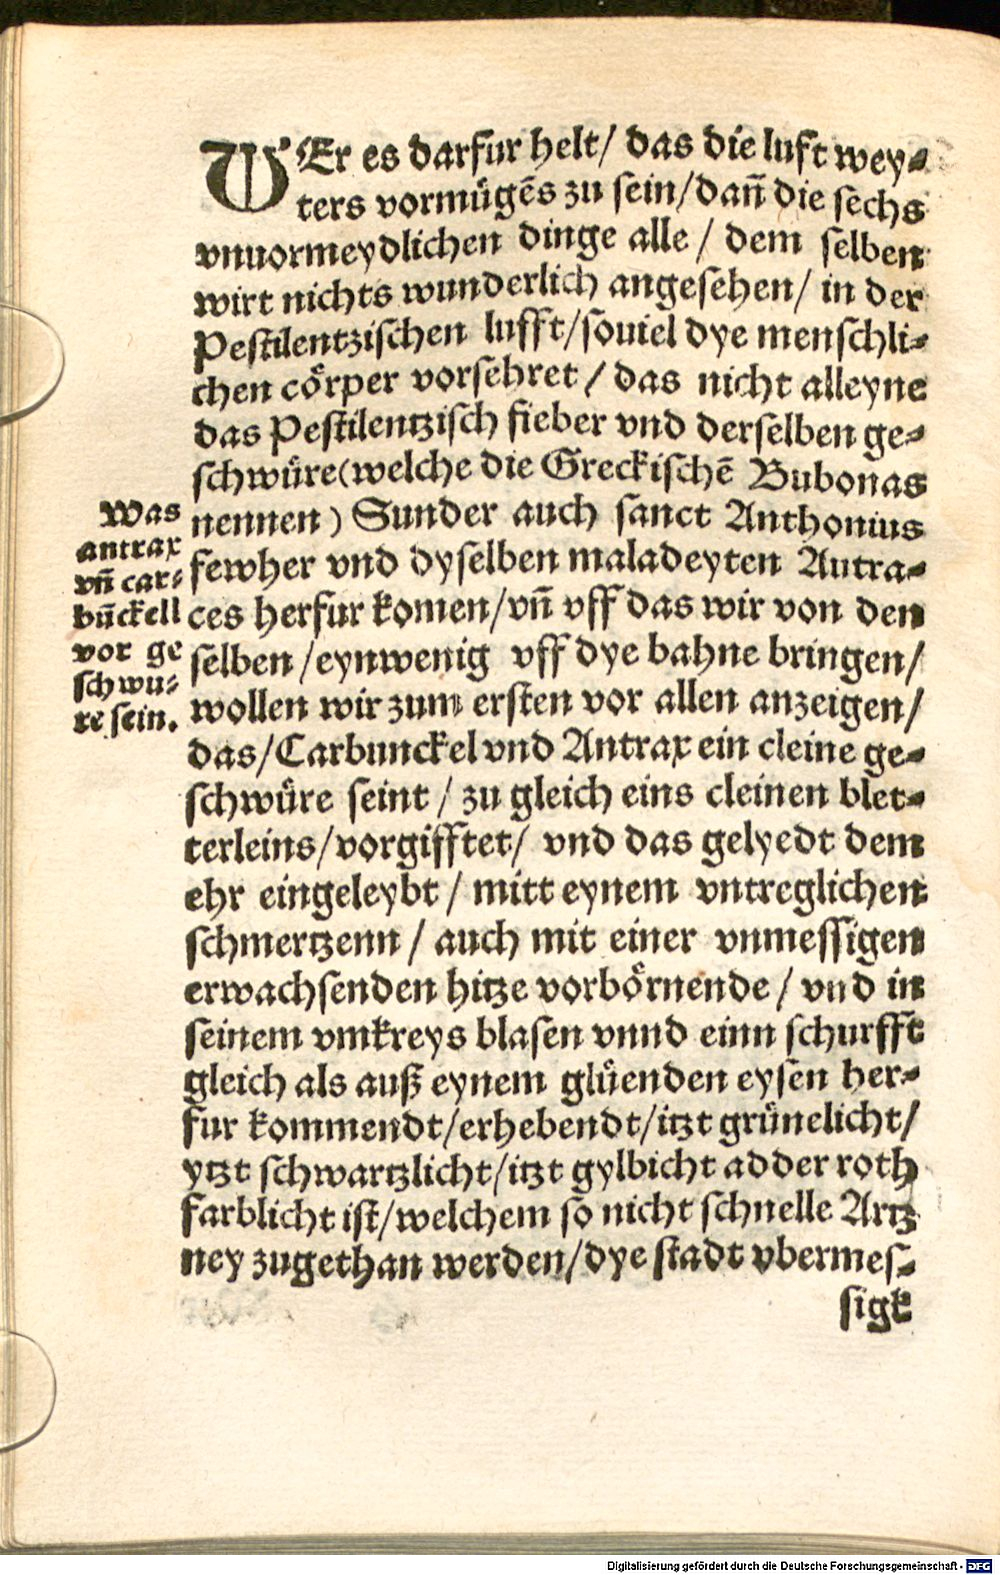 WEr es darfur helt/ das die luft wey⸗
ters vormügēs zu sein/dañ die sechs
vnuormeydlichen dinge alle / dem selben
wirt nichts wunderlich angesehen/ in der
Pestilentzischen lufft/souiel dye menschli⸗
chen cörper vorsehret / das nicht alleyne
das Pestilentzisch fieber vnd derselben ge⸗
schwüre(welche die Greckischē Bubonas
nennen) Sunder auch sanct Anthonius
fewher vnd dyselben maladeyten Autra⸗
ces herfur komen/vñ vff das wir von den
selben /eynwenig vff dye bahne bringen/
wollen wir zum ersten vor allen anzeigen/
das/Carbunckel vnd Antrax ein cleine ge⸗
schwüre seint / zu gleich eins cleinen blet⸗
terleins/vorgifftet/ vnd das gelyedt dem
ehr eingeleybt / mitt eynem vntreglichen
schmertzenn / auch mit einer vnmessigen
erwachsenden hitze vorbörnende / vnd in
seinem vmkreys blasen vnnd einn schurfft
gleich als auß eynem glüenden eysen her⸗
fur kommendt/erhebendt/itzt grünelicht/
ytzt schwartzlicht/itzt gylbicht adder roth
farblicht ist/welchem so nicht schnelle Artz
ney zugethan werden/dye stadt vbermes⸗
sigk
Was
antrax
vñ car⸗
bũckell
vor ge
schwu⸗
re sein.
Digitalisierung gefördert durch die Deutsche Forschungsgemeinschaft - DFG